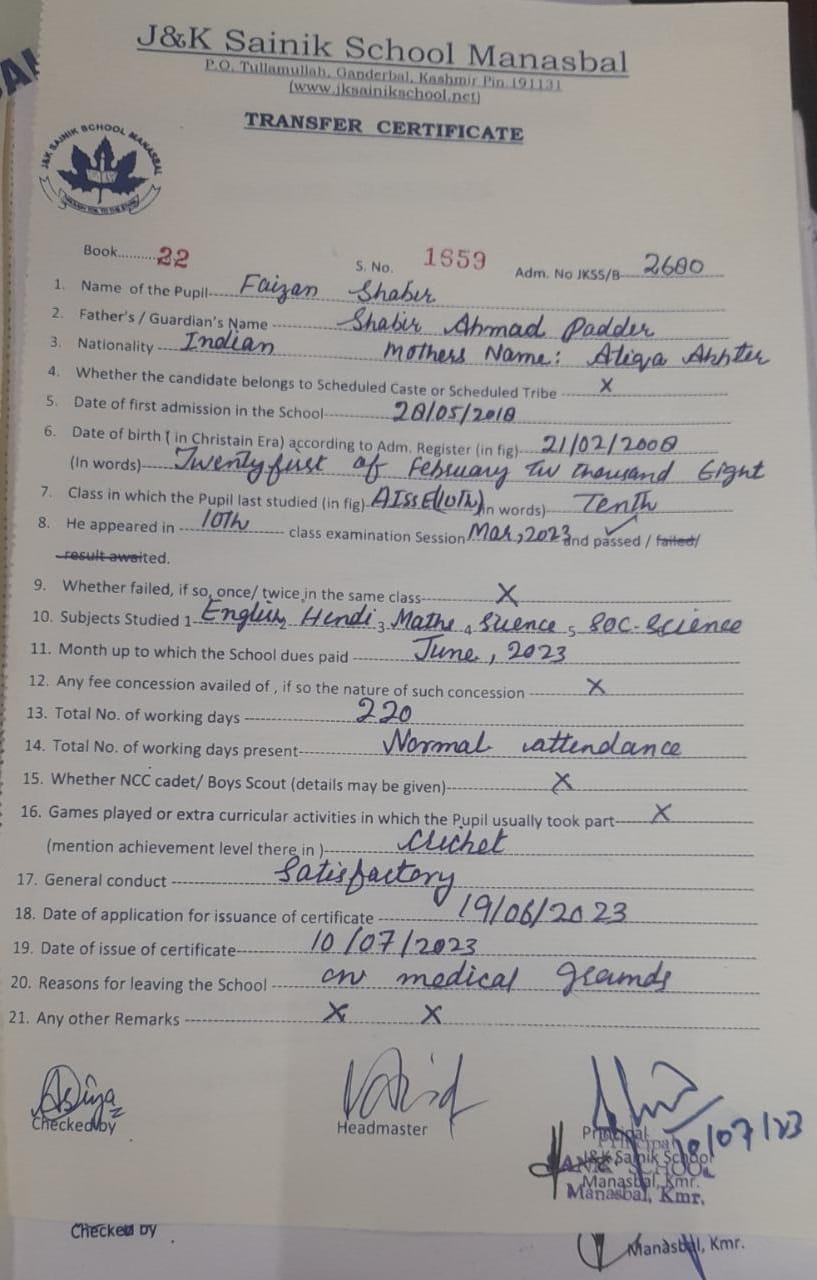 J&K Sainik School Manasbal
P.O. Tullamullah, Ganderbal, Kashmir Pin 191131
(www.jksainikschool.net)
TRANSFER CERTIFICATE
J&K SAINIK SCHOOL MANASBAL
Book.........22 S. No. 1659 Adm. No JKSS/B 2680
1. Name of the Pupil Faizan Shabir
2. Father's / Guardian's Name Shabir Ahmad Padder
3. Nationality Indian Mothers Name: Atiqa Akhter
4. Whether the candidate belongs to Scheduled Caste or Scheduled Tribe X
5. Date of first admission in the School 28/05/2018
6. Date of birth ( in Christain Era) according to Adm. Register (in fig) 21/02/2008
(In words) Twenty first of February Two Thousand Eight
7. Class in which the Pupil last studied (in fig) AISSE(10Th) in words) Tenth
8. He appeared in 10Th class examination Session Mar,2023 and passed / failed/
result awaited.
9. Whether failed, if so, once/ twice in the same class X
10. Subjects Studied 1 English 2 Hindi 3 Maths 4 Science 5 Soc. Science
11. Month up to which the School dues paid June, 2023
12. Any fee concession availed of , if so the nature of such concession X
13. Total No. of working days 220
14. Total No. of working days present Normal attendance
15. Whether NCC cadet/ Boys Scout (details may be given) X
16. Games played or extra curricular activities in which the Pupil usually took part X
(mention achievement level there in ) Cricket
17. General conduct Satisfactory
18. Date of application for issuance of certificate 19/06/2023
19. Date of issue of certificate 10/07/2023
20. Reasons for leaving the School on medical grounds
21. Any other Remarks X X
Checked by Headmaster Principal
10/07/23
J&K Sainik School
Manasbal, Kmr.
Manasbal, Kmr.
Checked by Manasbal, Kmr.